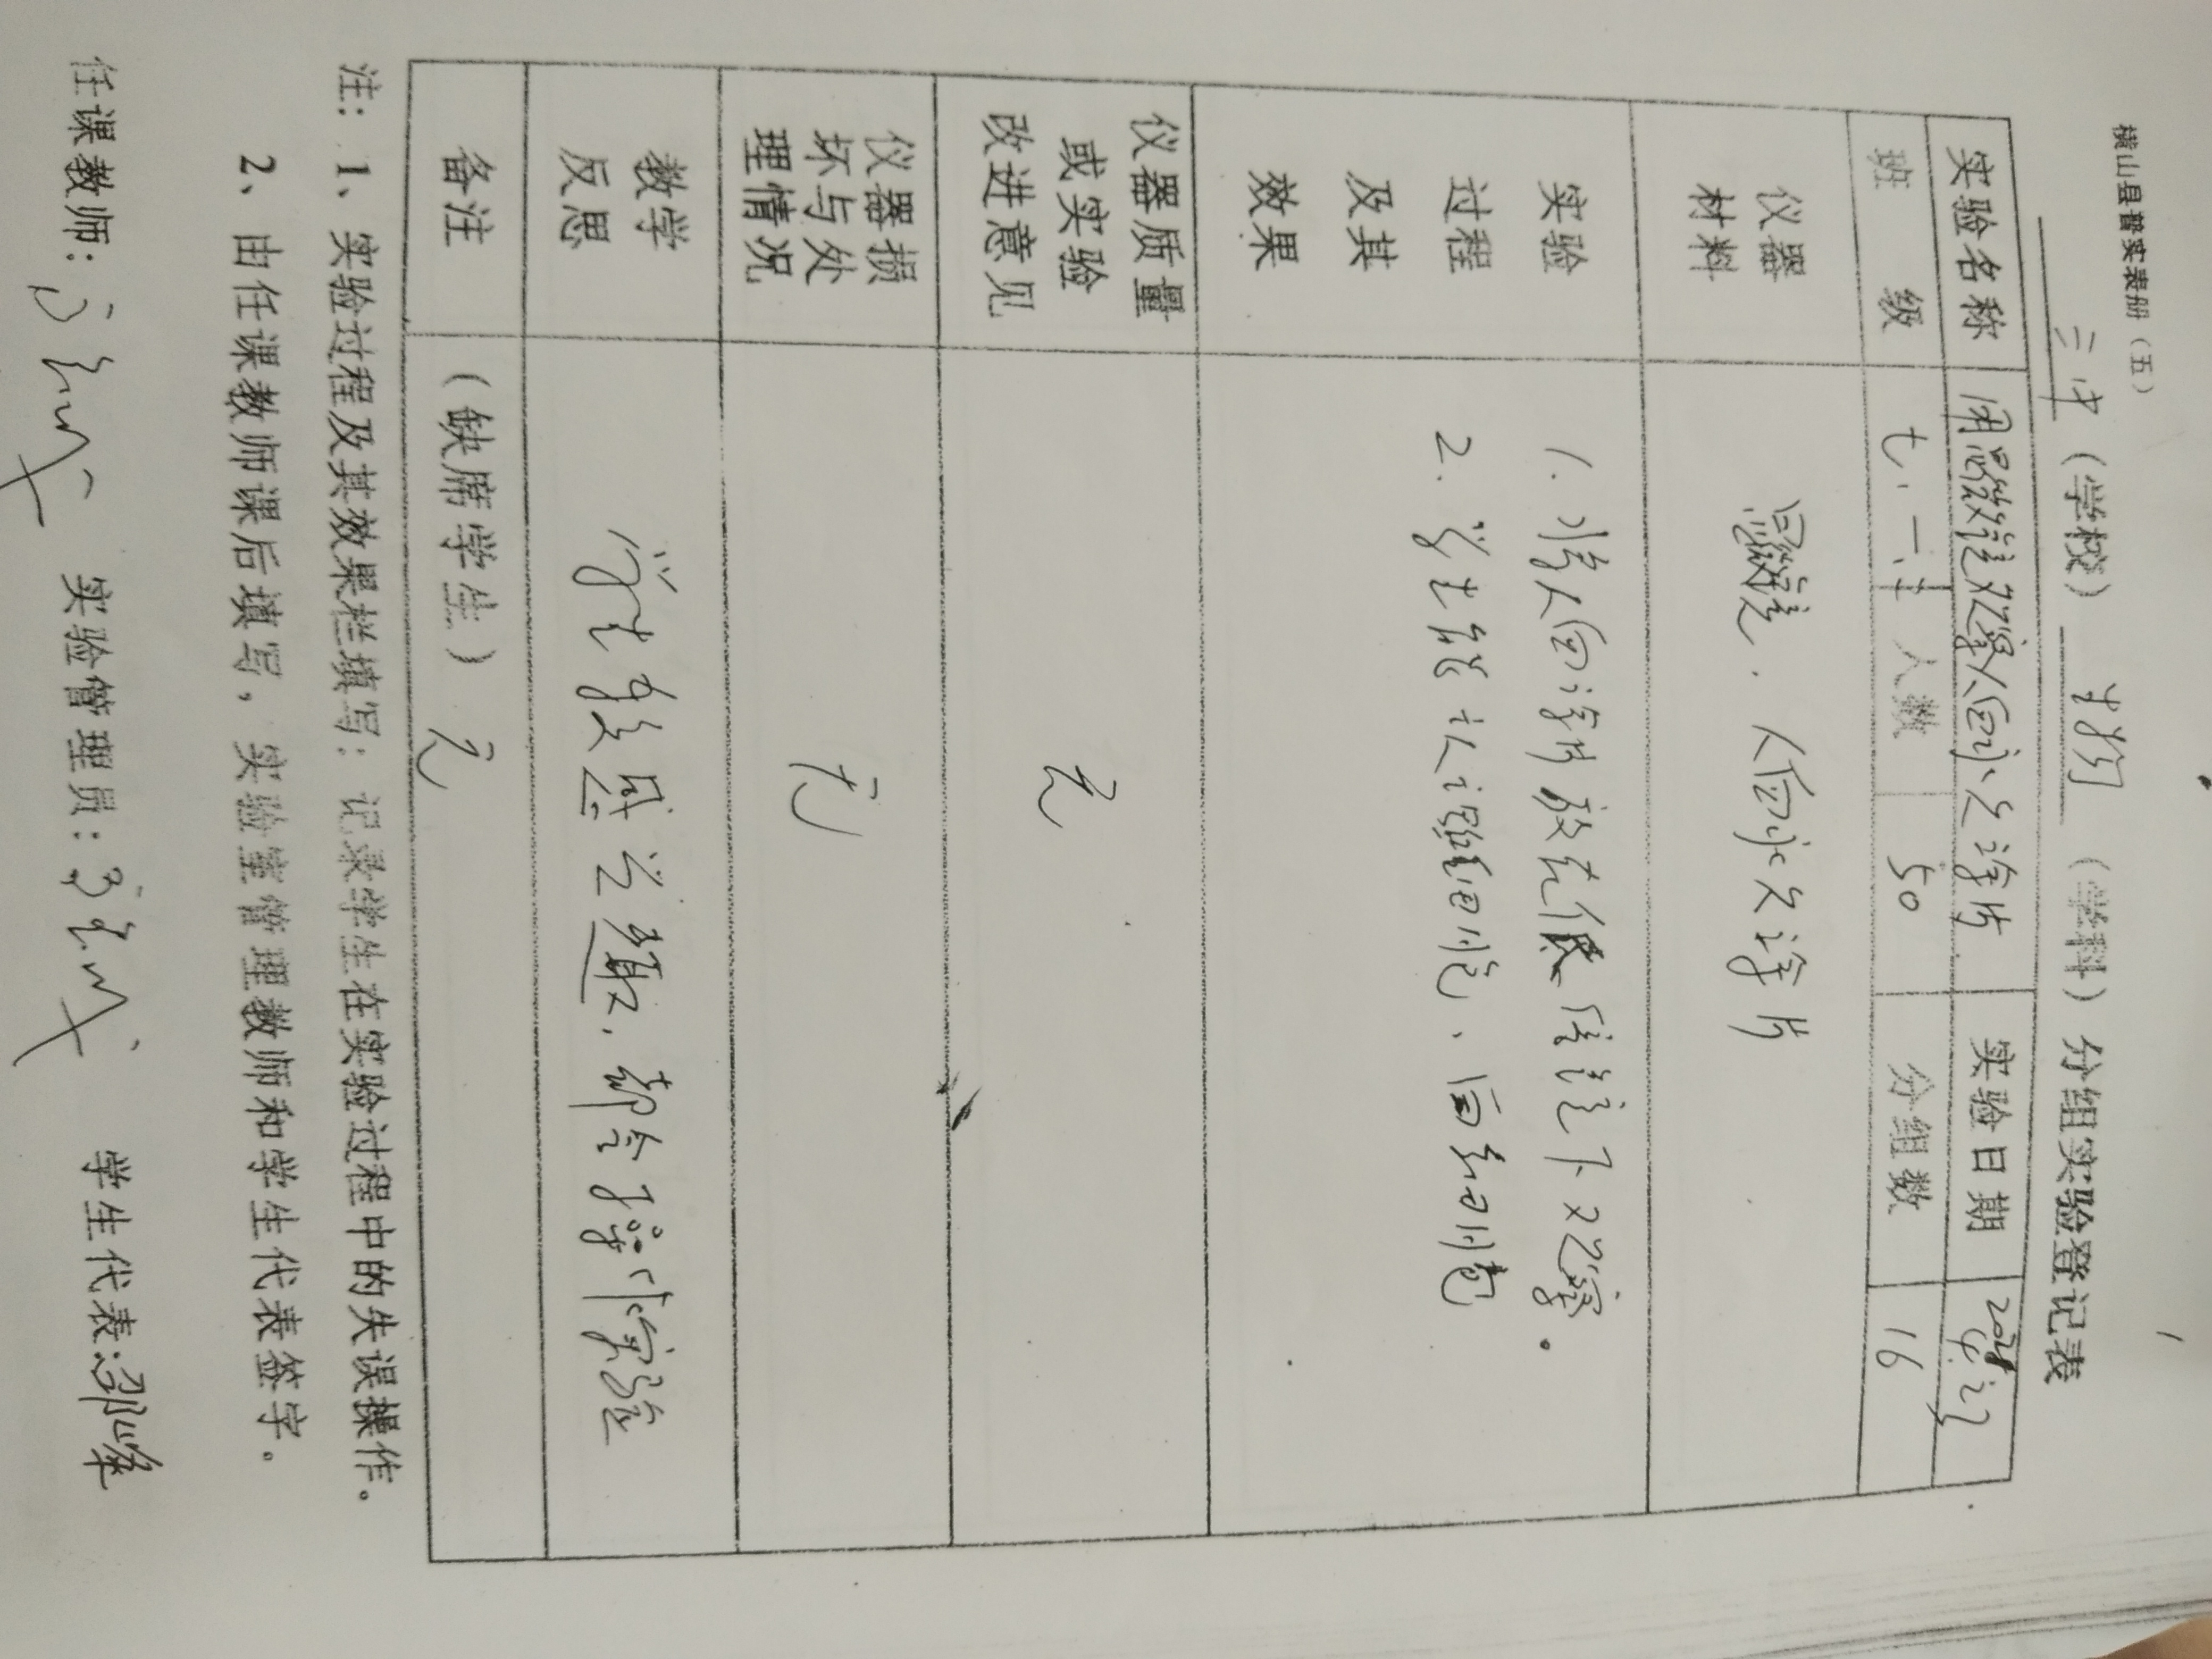 横山县普实表册（五）
三中（学校）生物（学科）分组实验登记表
实验名称 用显微镜观察人血永久涂片 实验日期
班级 七. 人数 50 分组数 16
仪器材料 显微镜. 人血永久涂片
实验过程及其效果
1. 将人血涂片放在低倍镜下观察.
2. 学生能认识白细胞、血红细胞
仪器质量或实验改进意见 无
仪器损坏与处理情况 无
教学反思 学生较感兴趣, 都会操作实验
备注 （缺席学生） 无
注：1、实验过程及其效果栏填写：记录学生在实验过程中的失误操作。
2、由任课教师课后填写，实验室管理教师和学生代表签字。
任课教师： 实验管理员： 学生代表：